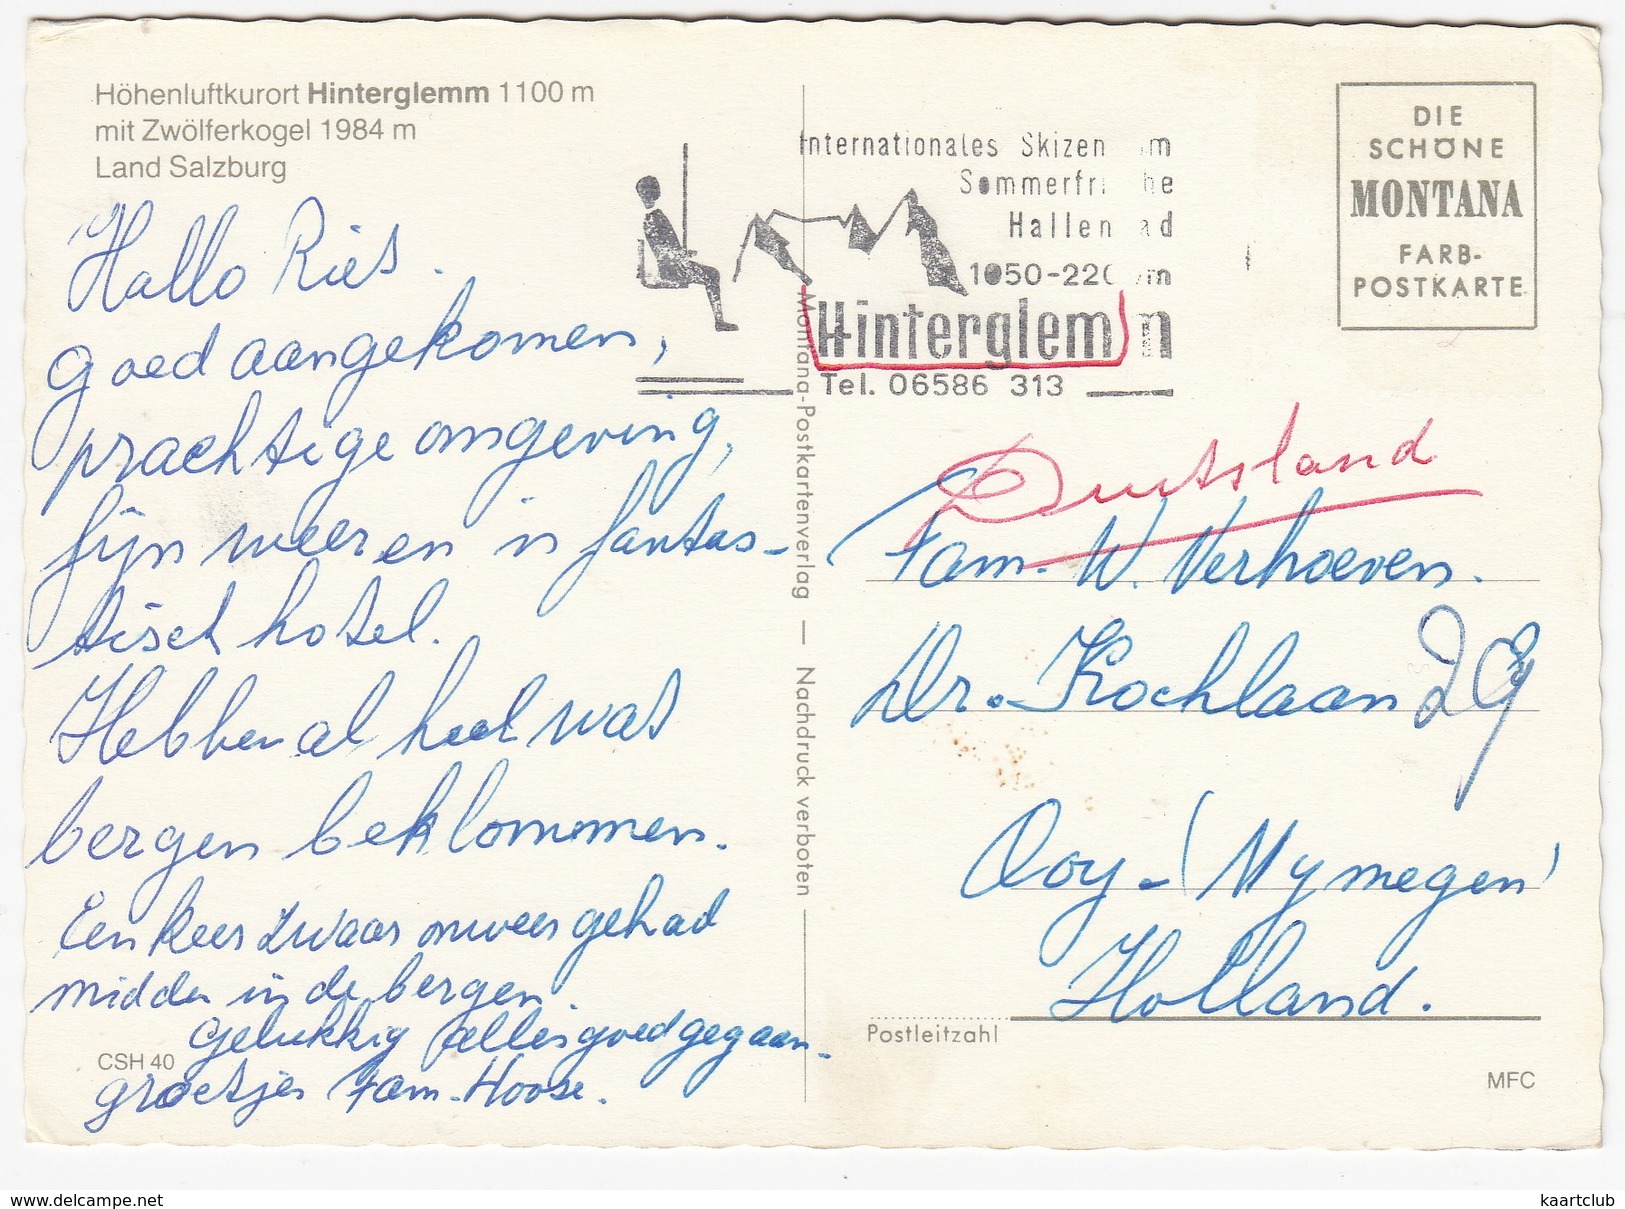 Höhenluftkurort Hinterglemm 1100 m
mit Zwölferkogel 1984 m
Land Salzburg
Hallo Ries.
goed aangekomen,
prachtige omgeving,
fijn weer en in fantas-
tisch hotel.
Hebben al heel wat
bergen beklommen.
Een keer zwaar onweer gehad
midden in de bergen.
gelukkig alles goed gegaan.
groetjes Fam. Hoose.
CSH 40
Montana-Postkartenverlag — Nachdruck verboten
Internationales Skizen m
Sommerfri he
Hallen ad
1050-220 m
Hinterglem n
Tel. 06586 313
DIE
SCHÖNE
MONTANA
FARB-
POSTKARTE
Duitsland
Fam. W. Verhoeven.
Dr. Kochlaan 29
Ooy - (Nymegen)
Holland.
Postleitzahl
MFC
www.delcampe.net
kaartclub